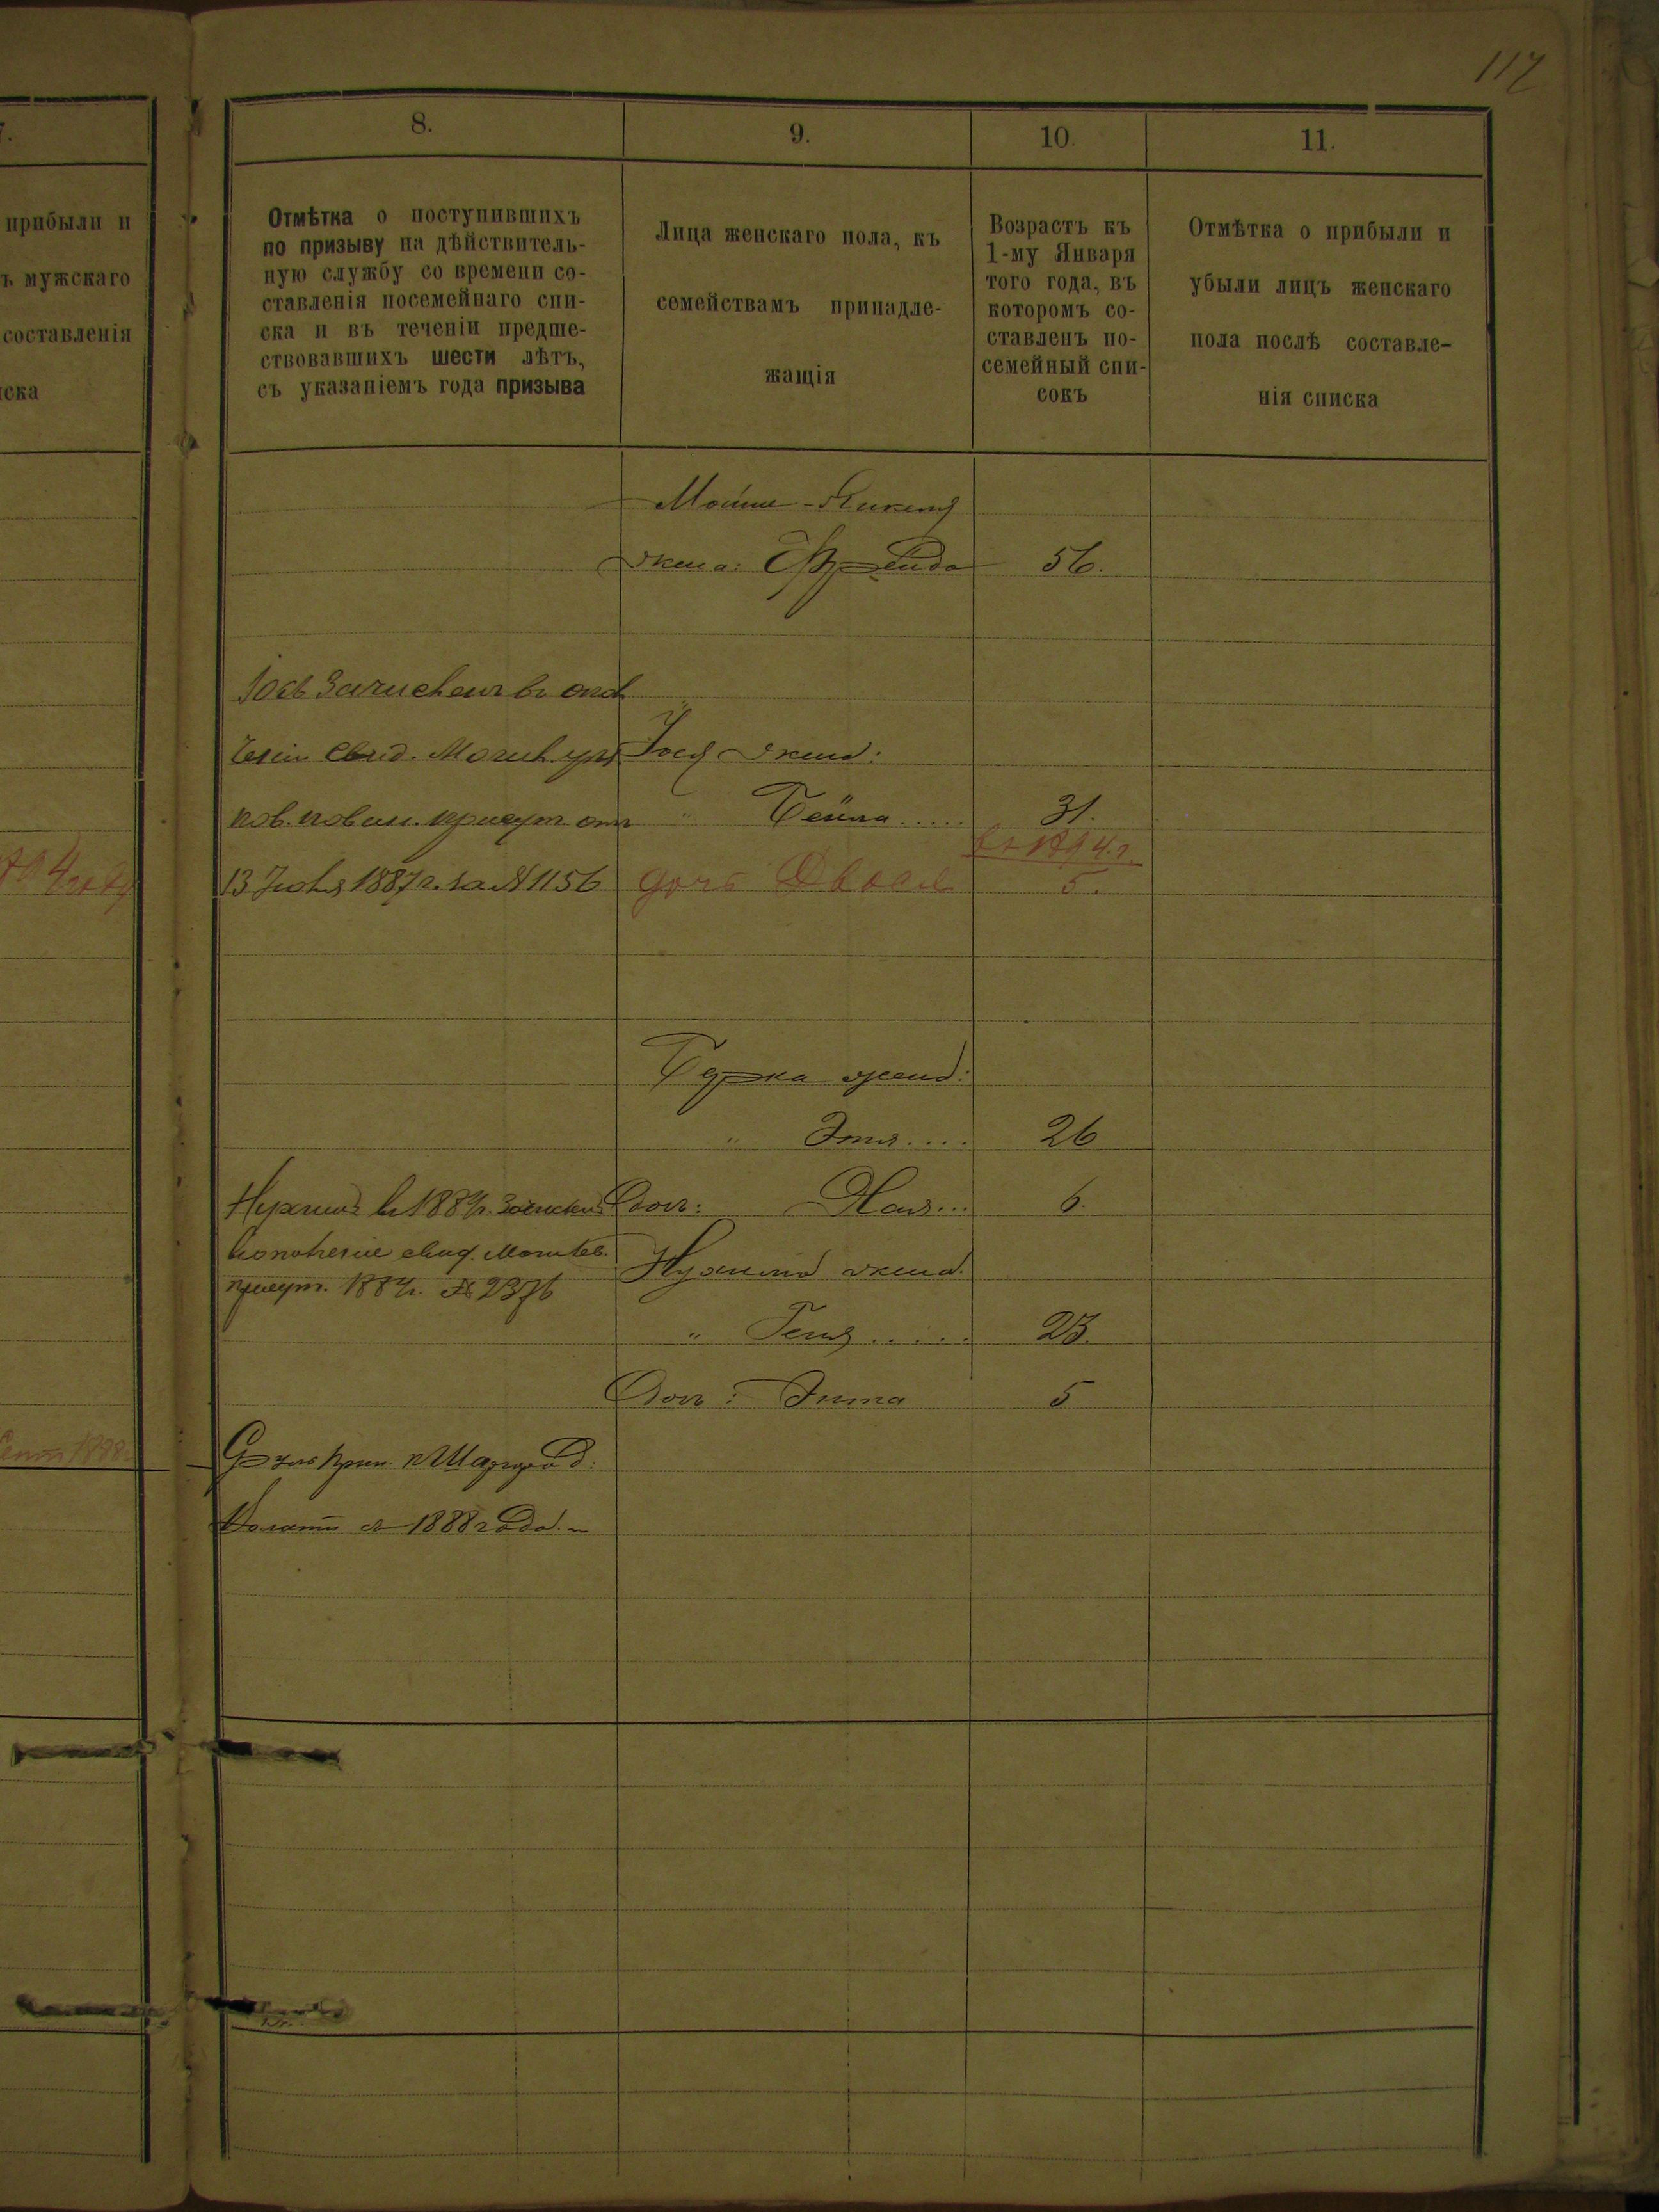 117
7.
прибыли и
ъ мужскаго
составленія
иска
8.
9.
10.
11.
Отмѣтка о поступившихъ
по призыву на дѣйствитель-
ную службу со времени со-
ставленія посемейнаго спи-
ска и въ теченіи предше-
ствовавшихъ шести лѣтъ,
съ указаніемъ года призыва
Лица женскаго пола, къ
семействамъ принадле-
жащія
Возрастъ къ
1-му Января
того года, въ
которомъ со-
ставленъ по-
семейный спи-
сокъ
Отмѣтка о прибыли и
убыли лицъ женскаго
пола послѣ составле-
нія списка
Мойше-
жена: Фрейда 56.
въ опол
ченіи свид. Могил. уѣз
Іося жена:
пов. повин. присут. отъ
" Бейла..... 31.
въ 1894.г.
13 Іюля 1887 г. за № 1156
дочь Двося 5.
Берка жена:
" Этя.... 26
Нухимъ въ 1884г. зачислен
Доч: Хая... 6.
въ ополченіе свид. Могилев.
присут. 1884г. № 2376
Нухима жена.
" Геня..... 23.
Доч: Энта 5
Сруль прин. к Шаргород:
1888 года.